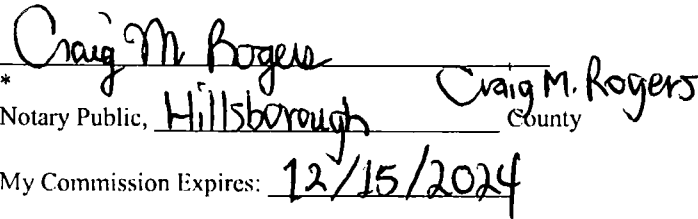 Craig M Rogers
*
Craig M. Rogers
Notary Public, Hillsborough County
My Commission Expires: 12/15/2024